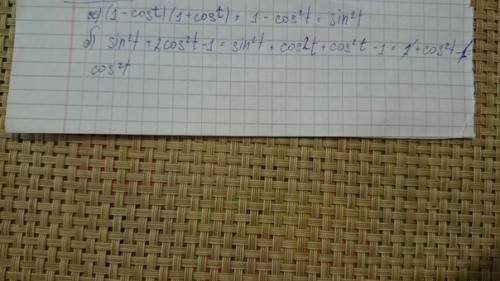 а) (1 - cos t)(1 + cos t) = 1 - cos²t = sin²t
б) sin²t + 2cos²t - 1 = sin²t + cos2t + cos²t - 1 = 1 + cos²t - 1
cos²t